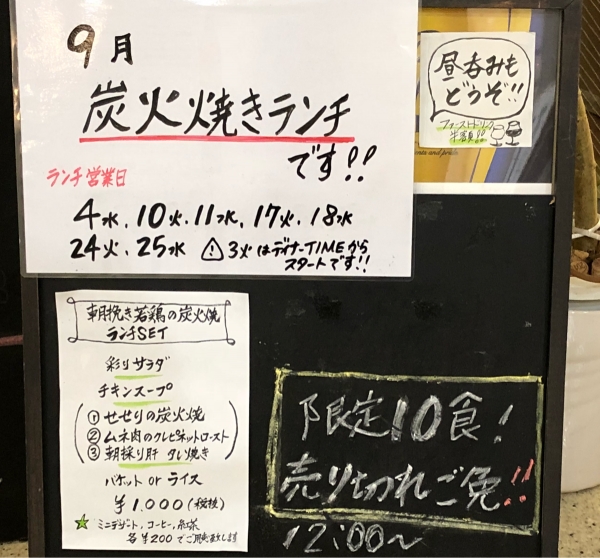 9月
炭火焼きランチ
です!!
ランチ営業日
4水、10火、11水、17火、18水
24火、25水 ⚠ 3火はディナーTIMEから
スタートです!!
昼呑みも
どうぞ!!
ファーストドリンク
半額!!
朝挽き若鶏の炭火焼
ランチSET
彩りサラダ
チキンスープ
① せせりの炭火焼
② ムネ肉のクレピネットロースト
③ 朝採り肝 タレ焼き
バケット or ライス
¥1.000(税抜)
☆ ミニデザート、コーヒー、紅茶
各¥200でご用意致します
限定10食!
売り切れご免!!
12:00~